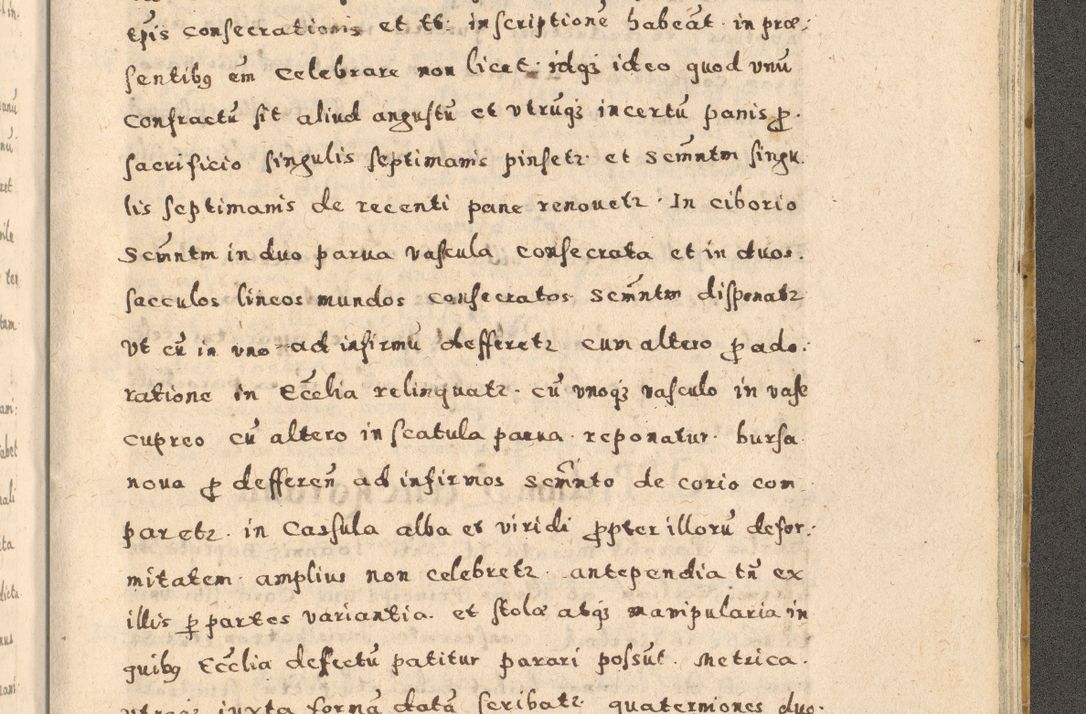 epis consecrationis et tt: inscriptionē habeāt in præ:
sentibꝫ em̄ celebrare non licet idqꝫ ideo quod vnū
confractū sit aliud angustū et vtrūqꝫ incertū panis ꝓ
sacrificio singulis septimanis pinsetr et Scm̄ntm singu
lis septimanis de recenti pane renouetr. In ciborio
Scm̄ntm in duo parua vascula consecrata et in duos.
sacculos lineos mundos consecratos Scm̄ntm disponatr
vt cū in vno ad infirmū defferetr cum altero ꝓ ado:
ratione in Eccl̄ia relinquatr. cū vnoqꝫ vasculo in vase
cupreo cū altero in scatula parua reponatur. bursa
noua ꝓ defferen̄ ad infirmos Scm̄nto de corio com
paretr. in Cassula alba et viridi ꝓpter illorū defor:
mitatem amplius non celebretr. antependia tn̄ ex
illis ꝑ partes variantia. et stolæ atqꝫ manipularia in
quibꝫ Eccl̄ia deffectū patitur parari possūt. Metrica.
vtraqꝫ iuxta formā datā scribatr quaterniones duo.